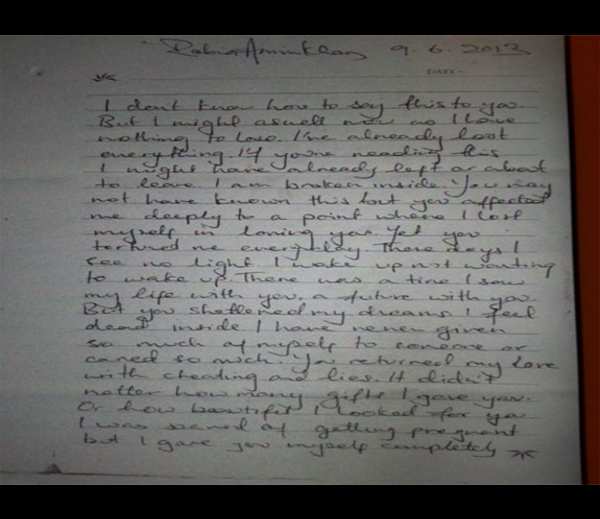 Rabia Amin Khan 9.6.2013
DATE:
I dont know how to say this to you
But I might aswell now as I have
nothing to lose. I've already lost
everything. If you're reading this
I might have already left or about
to leave. I am broken inside. You may
not have known this but you affected
me deeply to a point where I lost
myself in loving you. Yet you
tortured me everyday. These days I
see no light I wake up not wanting
to wake up. There was a time I saw
my life with you, a future with you.
But you shattered my dreams. I feel
dead inside. I have never given
so much of myself to someone or
cared so much. You returned my love
with cheating and lies. It didn't
matter how many gifts I gave you.
Or how beautiful I looked for you
I was scared of getting pregnant
but I gave you myself completely